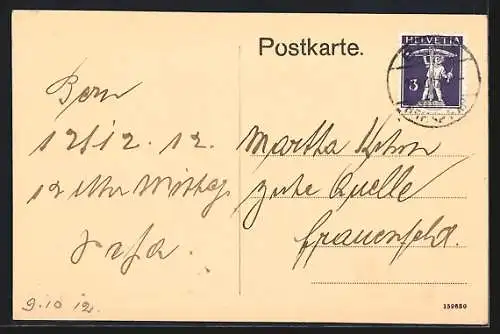 Postkarte.
HELVETIA
3
Bern
12/12. 12.
12 Uhr Mittag
Martha
gute Quelle
Frauenfeld.
9.10 12.
159650